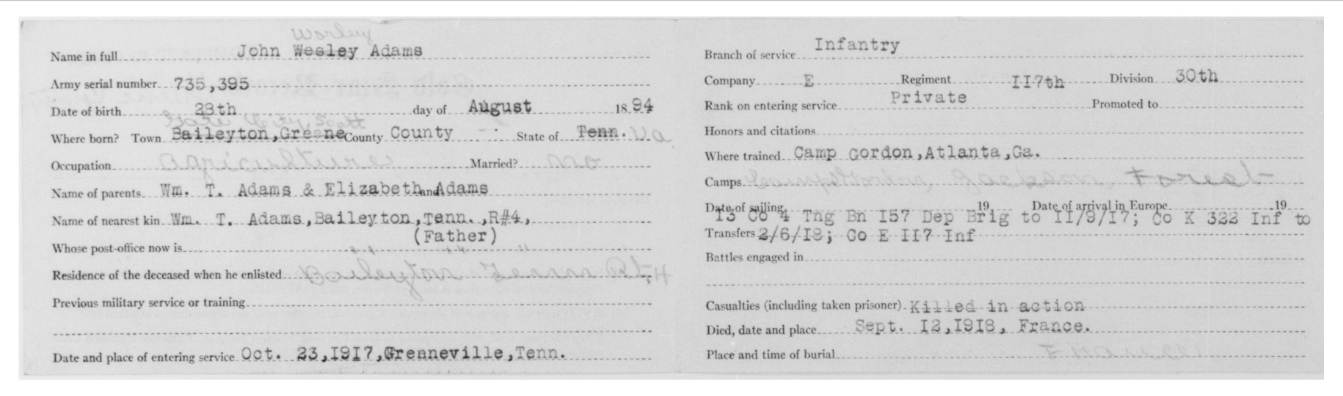 Worley
Name in full John Wesley Adams
Army serial number 735,395
Date of birth 28th day of August 18 94
Where born? Town Baileyton,Greene County County State of Tenn. Va
Occupation Agriculture Married? no
Name of parents Wm. T. Adams & Elizabeth and Adams
Name of nearest kin Wm. T. Adams,Baileyton,Tenn.,R#4,
(Father)
Whose post-office now is
Residence of the deceased when he enlisted Baileyton Tenn Rt4
Previous military service or training
Date and place of entering service Oct. 23,1917,Greeneville,Tenn.
Branch of service Infantry
Company E Regiment II7th Division 30th
Rank on entering service Private Promoted to
Honors and citations
Where trained Camp Gordon,Atlanta,Ga.
Camps Jackson, Forest
Date of sailing 19 Date of arrival in Europe 19
I3 Co 4 Tng Bn I57 Dep Brig to II/9/I7; Co K 322 Inf to
Transfers 2/6/I8; Co E II7 Inf
Battles engaged in
Casualties (including taken prisoner) Killed in action
Died, date and place Sept. I2,I9I8, France.
Place and time of burial France